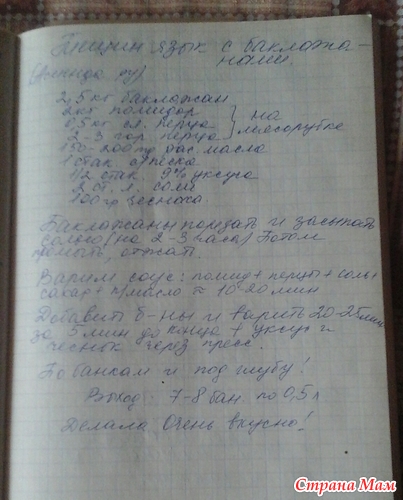 Тещин язык с баклажа-
нами.
2,5 кг баклажан
2 кг помидор
0,5 кг сл. перца } на
2-3 гор. перца мясорубке
150-200 гр рас. масла
1 стак с/песка
1/2 стак 9% уксуса
2 ст. л. соли
100 гр чеснока.
Баклажаны порезать и засыпать
солью (на 2-3 часа) Потом
промыть, отжать.
Варим соус: помид + перцы + соль +
сахар + р/масло ≈ 10-20 мин
Добавить б-ны и варить 20-25 мин
за 5 мин до конца + уксус и
чеснок через пресс.
По банкам и под шубу!
Выход: 7-8 бан. по 0,5 л
Делала Очень вкусно!
Страна Мам